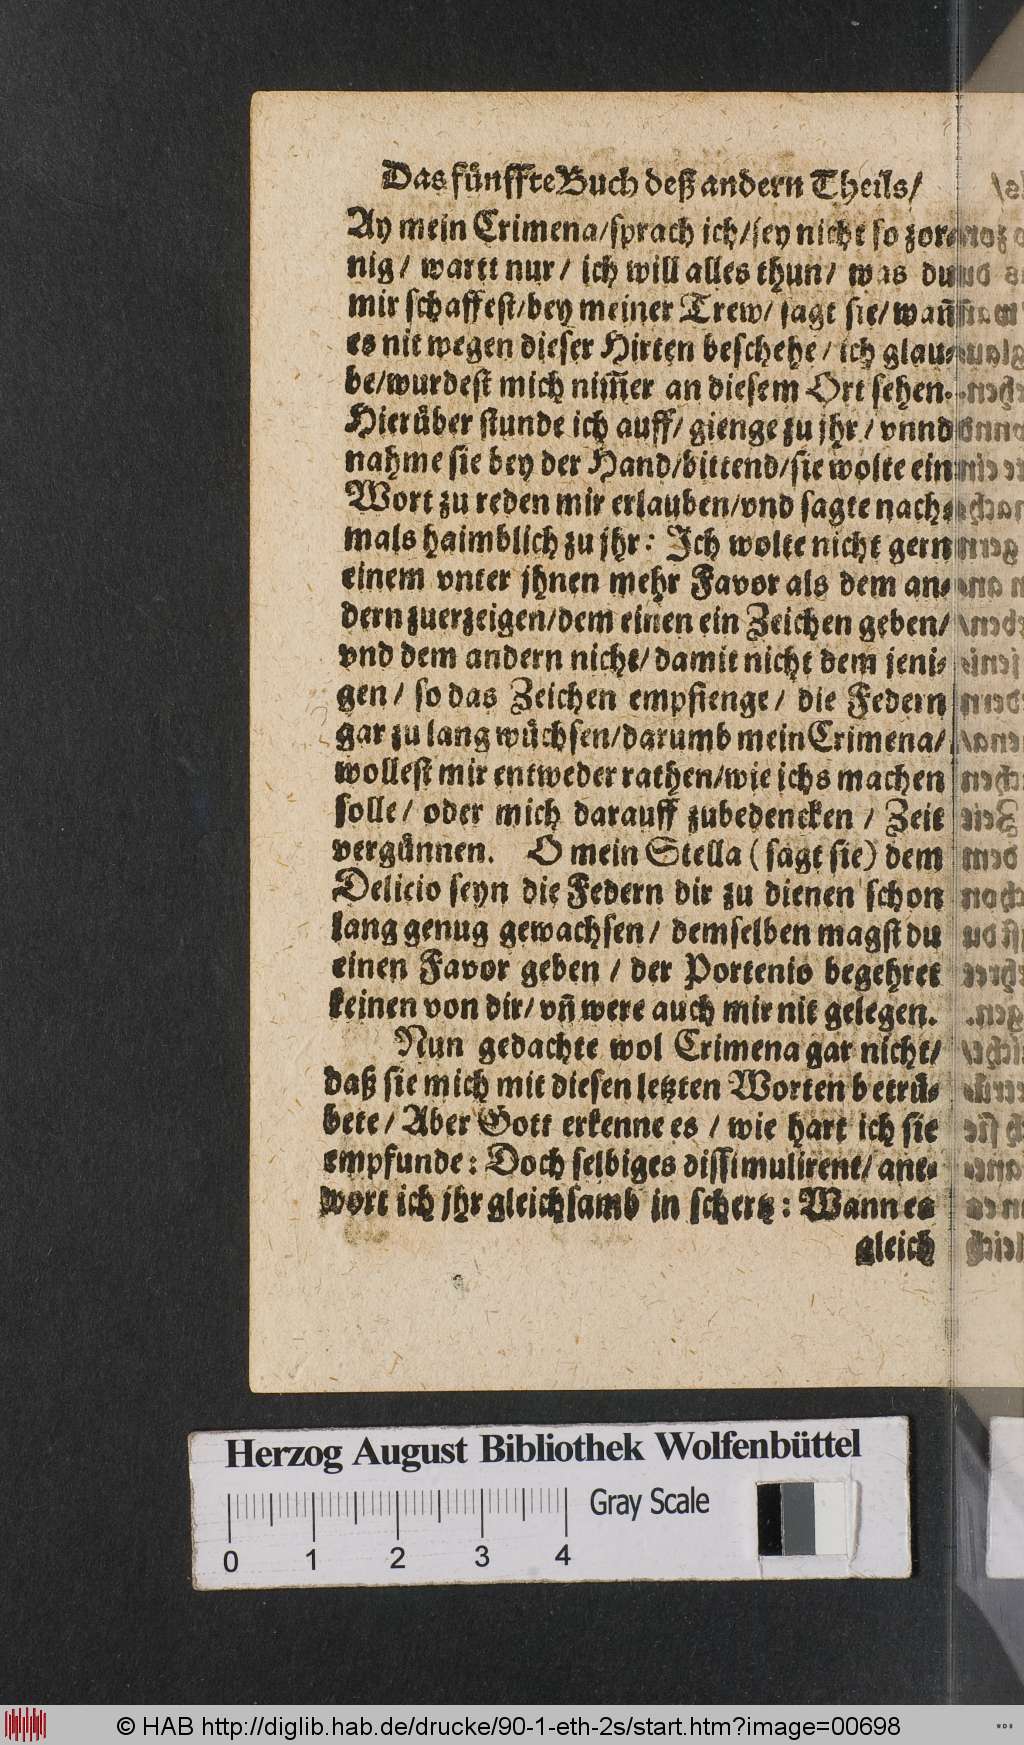 Das fünffte Buch deß andern Theils/
Ay mein Crimena/sprach ich/sey nicht so zor-
nig/ wartt nur/ ich will alles thun/ was du
mir schaffest/bey meiner Trew/ sagt sie/ wañ
es nit wegen dieser Hirten beschehe/ ich glau-
be/wurdest mich nim̃er an diesem Ort sehen.
Hierüber stunde ich auff/ gienge zu jhr/ vnnd
nahme sie bey der Hand/bittend/sie wolte ein
Wort zu reden mir erlauben/vnd sagte nach-
mals haimblich zu jhr: Ich wolte nicht gern
einem vnter jhnen mehr Favor als dem an-
dern zuerzeigen/dem einen ein Zeichen geben/
vnd dem andern nicht/ damit nicht dem jeni-
gen/ so das Zeichen empfienge/ die Federn
gar zu lang wüchsen/darumb mein Crimena/
wollest mir entweder rathen/wie ichs machen
solle/ oder mich darauff zubedencken/ Zeit
vergünnen. O mein Stella (sagt sie) dem
Delicio seyn die Federn dir zu dienen schon
lang genug gewachsen/ demselben magst du
einen Favor geben/ der Portenio begehret
keinen von dir/ vñ were auch mir nit gelegen.
Nun gedachte wol Crimena gar nicht/
daß sie mich mit diesen letzten Worten betrü-
bete/ Aber Gott erkenne es/ wie hart ich sie
empfunde: Doch selbiges dissimulirent/ ant-
wort ich jhr gleichsamb in schertz: Wann es
gleich
Herzog August Bibliothek Wolfenbüttel
0 1 2 3 4 Gray Scale
© HAB http://diglib.hab.de/drucke/90-1-eth-2s/start.htm?image=00698